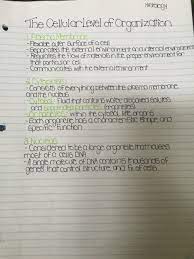 The Cellular Level of Organization
1. Plasma Membrane
- Flexible outer surface of a cell
- Separates the internal environment and external environment
- Regulates the flow of materials in the proper environment for
that particular cell
- Communicates with the external environment
2. Cytoplasm
- Consists of everything between the plasma membrane
and the nucleus
- Cytosol: Fluid that contains water, dissolved solutes
and suspended particles (organelles)
- Organelles: Within the cytosol, little organs
- Each organelle has a characteristic shape and
specific function
3. Nucleus
- Considered to be a large organelle that houses
most of a cell's DNA
- A single molecule of DNA contains thousands of
genes that control structure and fx of cells.